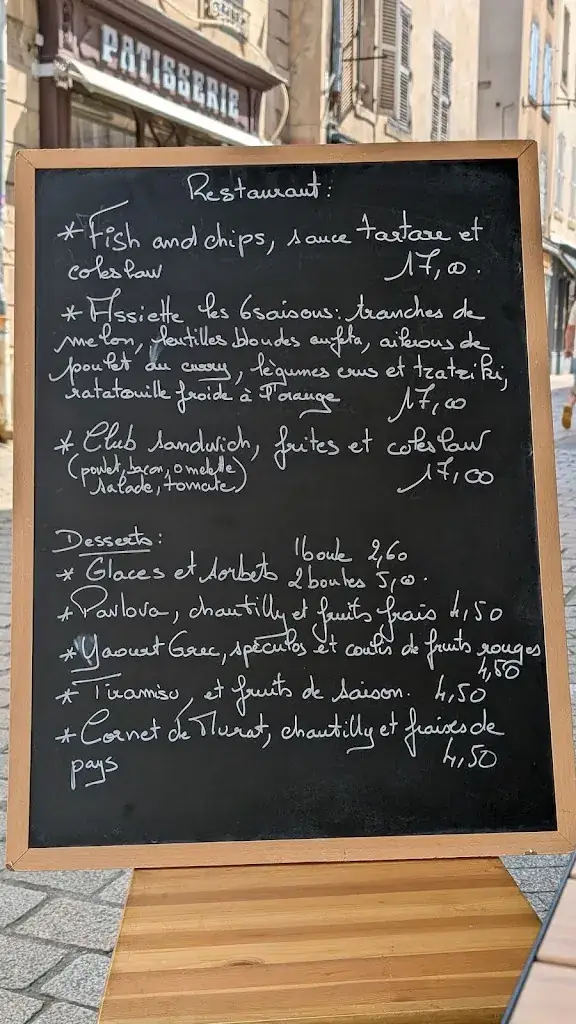 PATISSERIE
Restaurant:
* Fish and chips, sauce tartare et
coleslaw 17,00.
* Assiette les 6saisons: tranches de
melon, lentilles blondes en feta, ailerons de
poulet au curry, légumes crus et tzatziki,
ratatouille froide à l'orange 17,00
* Club sandwich, frites et coleslaw
(poulet, bacon, omelette 17,00
salade, tomate)
Desserts:
1 boule 2,60
* Glaces et sorbets 2 boules 5,00.
* Pavlova, chantilly et fruits frais 4,50
* Yaourt Grec, spéculos et coulis de fruits rouges
4,50
* Tiramisu, et fruits de saison. 4,50
* Cornet de Murat, chantilly et fraises de
pays 4,50